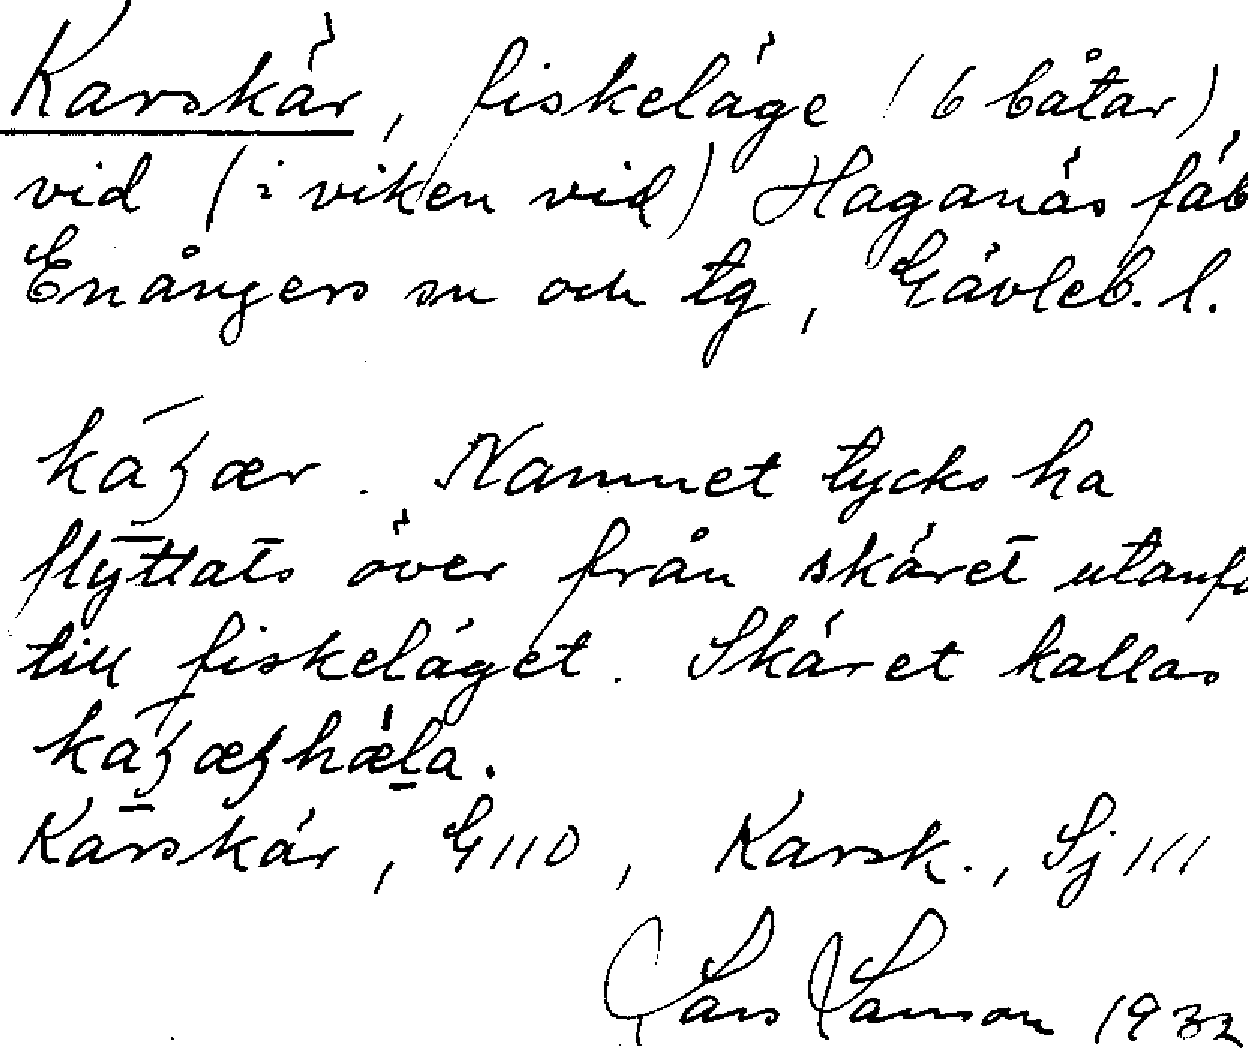 Karskär, fiskeläge (6 båtar)
vid (i viken vid) Haganäs fäb
Enångers sn och tg, Gävleb. l.
. Namnet tycks ha
flyttats över från skäret utanfö
till fiskeläget. Skäret kallas
Karskär, G110, Karsk., Sj 111
Lars Larsson 1932